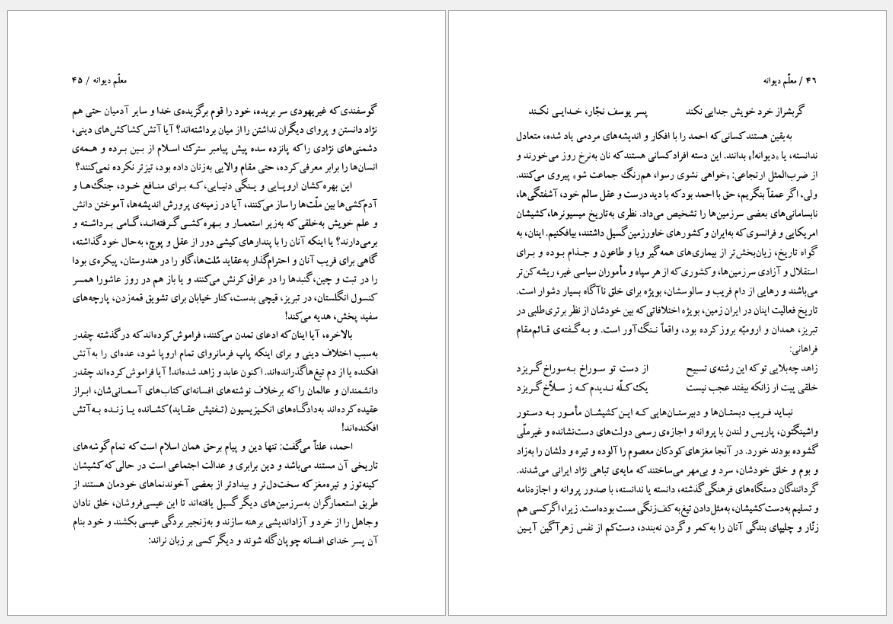 معلّم دیوانه / ۴۵
گوسفندی که غیریهودی سر بریده، خود را قوم برگزیده‌ی خدا و سایر آدمیان حتی هم
نژاد دانستن و پروای دیگران نداشتن را از میان برداشته‌اند؟ آیا آتش کشاکش‌های دینی،
دشمنی‌های نژادی را که پانزده سده پیش پیامبر سترک اسلام از بین برده و همه‌ی
انسان‌ها را برابر معرفی کرده، حتی مقام والایی به‌زنان داده بود، تیزتر نکرده نمی‌کنند؟
این بهره‌کشان اروپایی و ینگی دنیایی، که برای منافع خود، جنگ‌ها و
آدم‌کشی‌ها بین ملّت‌ها را ساز می‌کنند، آیا در زمینه‌ی پرورش اندیشه‌ها، آموختن دانش
و علم خویش به‌خلقی که به‌زیر استعمار و بهره‌کشی گرفته‌اند، گامی برداشته و
برمی‌دارند؟ یا اینکه آنان را با پندارهای کیشی دور از عقل و پوچ، به‌حال خود گذاشته،
گاهی برای فریب آنان و احترام‌گذار به‌عقاید مُلت‌ها، گاو را در هندوستان، پیکره‌ی بودا
را در تبت و چین، گنبدها را در عراق کرنش می‌کنند و یا باز هم در روز عاشورا همسر
کنسول انگلستان، در تبریز، قیچی بدست، کنار خیابان برای تشویق قمه‌زدن، پارچه‌های
سفید پخش، هدیه می‌کند!
بالاخره، آیا اینان که ادعای تمدن می‌کنند، فراموش کرده‌اند که در گذشته چقدر
به‌سبب اختلاف دینی و برای اینکه پاپ فرمانروای تمام اروپا شود، عده‌ای را به‌آتش
افکنده یا از دم تیغ‌ها گذرانده‌اند. اکنون عابد و زاهد شده‌اند! آیا فراموش کرده‌اند چقدر
دانشمندان و عالمان را که برخلاف نوشته‌های افسانه‌ای کتاب‌های آسمانی‌شان، ابراز
عقیده کرده‌اند به‌دادگاه‌های انکیزیسیون (تفتیش عقاید) کشانده یا زنده به‌آتش
افکنده‌اند!
احمد، علناً می‌گفت: تنها دین و پیام برحق همان اسلام است که تمام گوشه‌های
تاریخی آن مستند می‌باشد و دین برابری و عدالت اجتماعی است در حالی که کشیشان
کینه‌توز و تیره‌مغز که سخت‌دل‌تر و بیدادتر از بعضی آخوندنماهای خودمان هستند از
طریق استعمارگران به‌سرزمین‌های دیگر گسیل یافته‌اند تا این عیسی‌فروشان، خلق نادان
وجاهل را از خرد و آزاداندیشی برهنه سازند و به‌زنجیر بردگی عیسی بکشند و خود بنام
آن پسر خدای افسانه چوپان گله شوند و دیگر کسی بر زبان نراند:
۴۶ / معلّم دیوانه
گربشر از خرد خویش جدایی نکند پسر یوسف نجّار، خدایی نکند
به‌یقین هستند کسانی که احمد را با افکار و اندیشه‌های مردمی یاد شده، متعادل
ندانسته، یا «دیوانه!» بدانند. این دسته افراد کسانی هستند که نان به‌نرخ روز می‌خورند و
از ضرب‌المثل ارتجاعی: «خواهی نشوی رسوا، همرنگ جماعت شو» پیروی می‌کنند.
ولی، اگر عمقاً بنگریم، حق با احمد بود که با دید درست و عقل سالم خود، آشفتگی‌ها،
نابسامانی‌های بعضی سرزمین‌ها را تشخیص می‌داد. نظری به‌تاریخ میسیونرها، کشیشان
امریکایی و فرانسوی که به‌ایران و کشورهای خاورزمین گسیل داشتند، بیافکنیم. اینان، به
گواه تاریخ، زیان‌بخش‌تر از بیماری‌های همه‌گیر وبا و طاعون و جذام بوده و برای
استقلال و آزادی سرزمین‌ها، و کشوری که از هر سپاه و مأموران سیاسی غیر، ریشه کن‌تر
می‌باشند و رهایی از دام فریب و سالوسشان، بویژه برای خلق ناآگاه بسیار دشوار است.
تاریخ فعالیت اینان در ایران زمین، بویژه اختلافاتی که بین خودشان از نظر برتری‌طلبی در
تبریز، همدان و ارومیّه بروز کرده بود، واقعاً ننگ‌آور است. و به‌گفته‌ی قائم‌مقام
فراهانی:
زاهد چه‌بلایی تو که این رشته‌ی تسبیح از دست تو سوراخ به‌سوراخ گریزد
خلقی پیت ار زانکه بیفتند عجب نیست یک کلّه ندیدم که ز سلّاخ گریزد
نباید فریب دبستان‌ها و دبیرستان‌هایی که این کشیشان مأمور به دستور
واشینگتون، پاریس و لندن با پروانه و اجازه‌ی رسمی دولت‌های دست‌نشانده و غیرملّی
گشوده بودند خورد. در آنجا مغزهای کودکان معصوم را آلوده و تیره و دلشان را به‌زاد
و بوم و خلق خودشان، سرد و بی‌مهر می‌ساختند که مایه‌ی تباهی نژاد ایرانی می‌شدند.
گردانندگان دستگاه‌های فرهنگی گذشته، دانسته یا ندانسته، با صدور پروانه و اجازه‌نامه
و تسلیم به‌دست کشیشان، به‌مثل دادن تیغ به‌کف زنگی مست بوده‌است. زیرا، اگر کسی هم
زنّار و چلیپای بندگی آنان را به‌کمر و گردن نه‌بندد، دست‌کم از نفس زهرآگین آیین